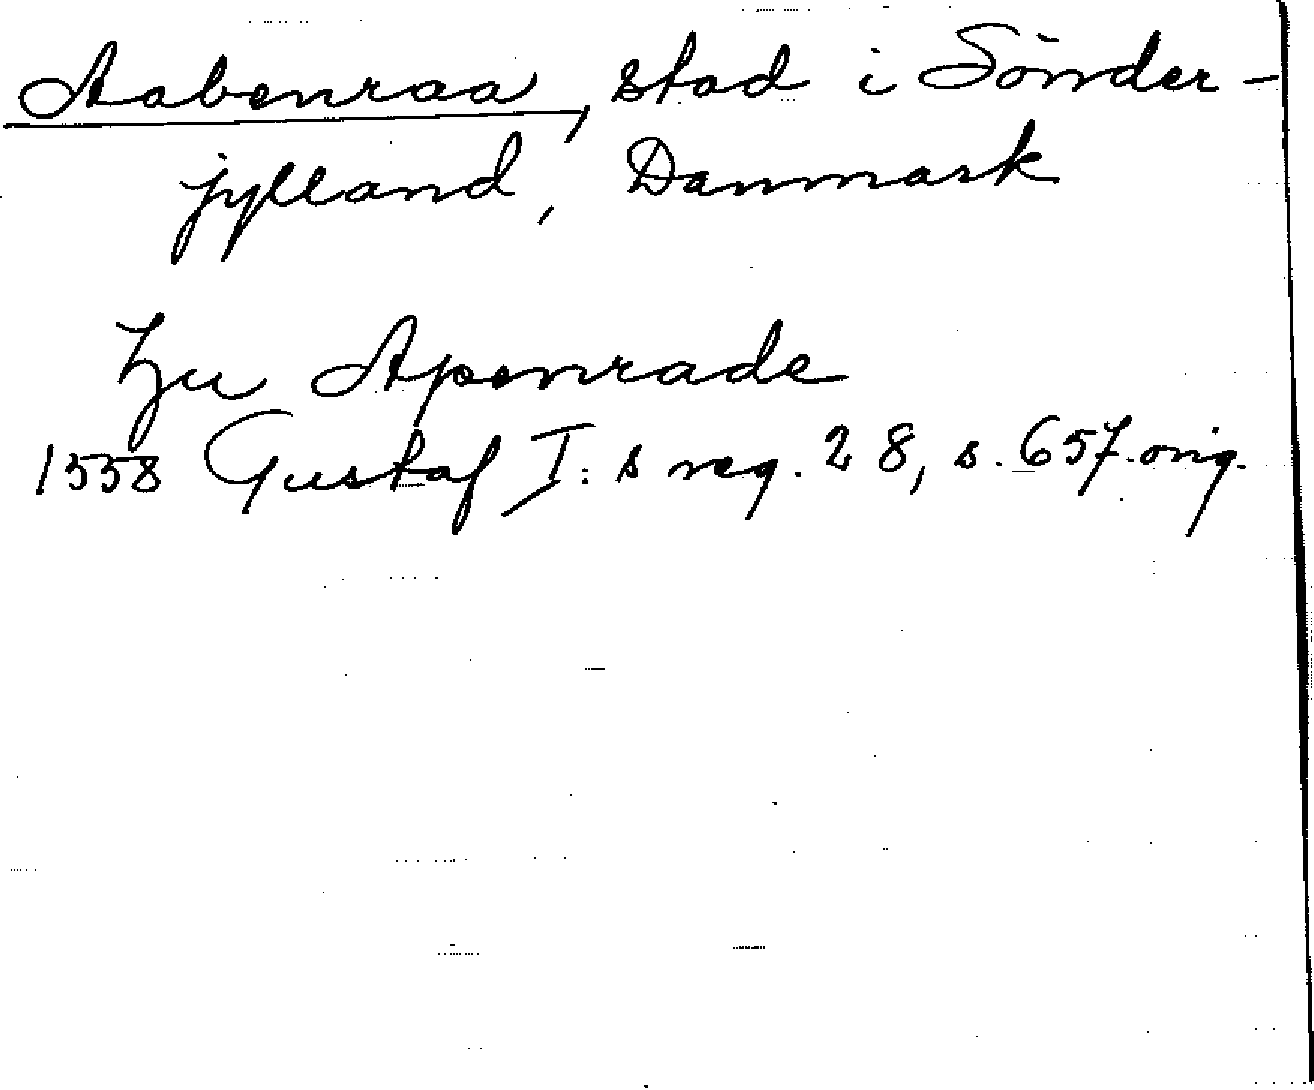 Aabenraa, stad i Sönder-
jylland, Danmark
Zu Apenrade
1558 Gustaf I:s reg. 28, s. 657. orig.